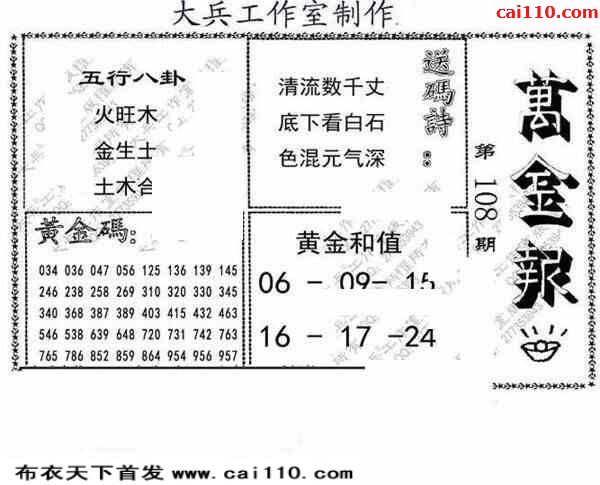 大兵工作室制作
cai110.com
萬金报
第108期
送碼詩：
清流数千丈
底下看白石
色混元气深
五行八卦
火旺木
金生土
土木合
黄金碼：
034 036 047 056 125 136 139 145
246 238 258 269 310 320 330 345
340 368 387 389 403 415 432 463
546 538 639 648 720 731 742 763
765 786 852 859 864 954 956 957
黄金和值
06 - 09- 15
16 - 17 -24
布衣天下首发 www.cai110.com